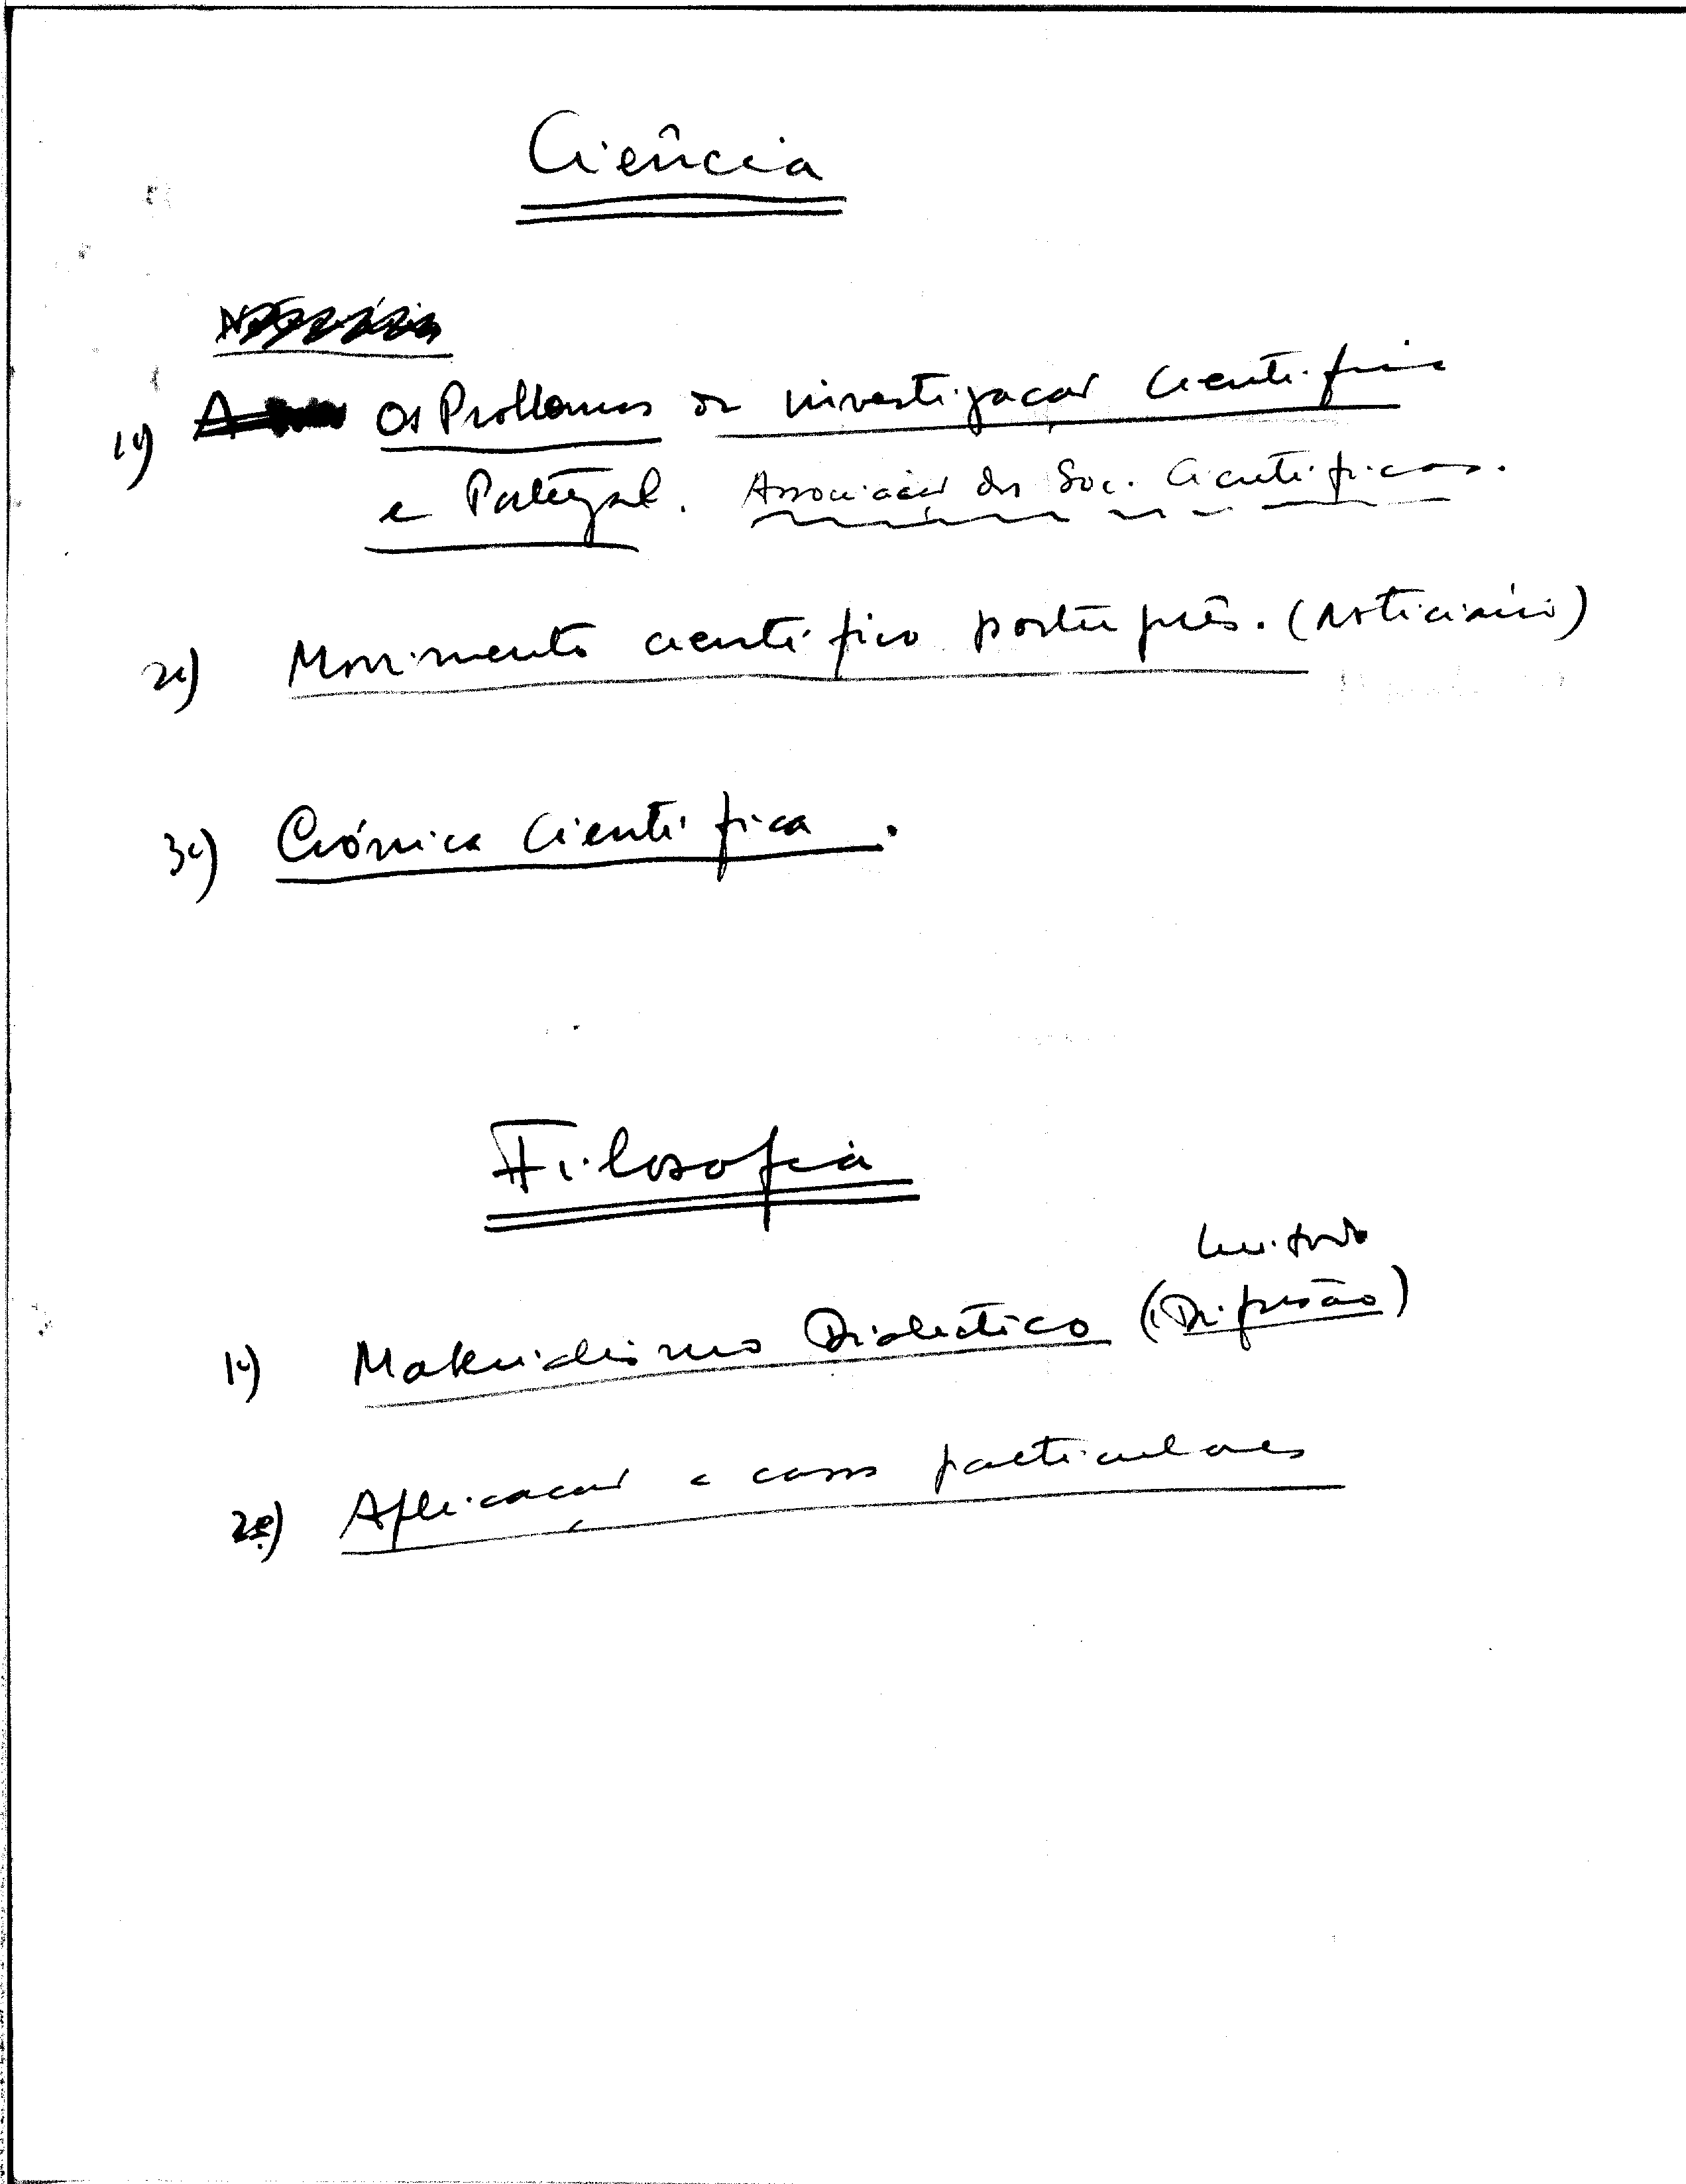 Ciência
1º) Os Problemas da investigação científica
e Portugal. Associação das Soc. Científicas.
2º) Movimento científico português. (Noticiário)
3º) Crónica Científica.
Filosofia
1º) Materialismo Dialéctico (Difusão)
2º) Aplicação a casos particulares